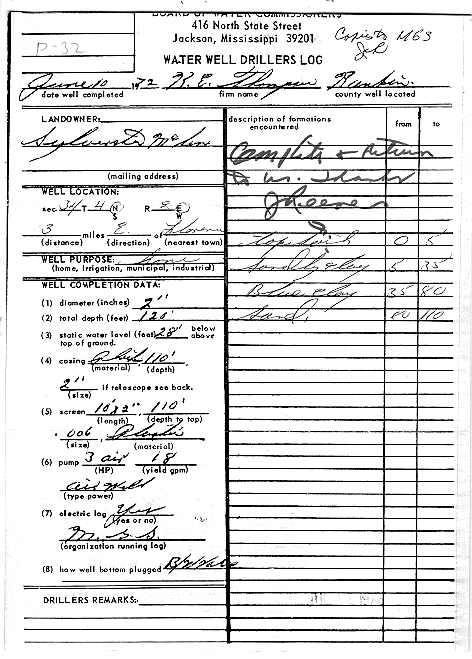 BOARD OF WATER COMMISSIONERS
416 North State Street
Jackson, Mississippi 39201
Copies to MGS
P-32
WATER WELL DRILLERS LOG
June 10, 72 R. E. Thompson Rankin
date well completed firm name county well located
LANDOWNER: description of formations encountered from to
Sylvester
Complete & Return
to us. Thanks
(mailing address)
J Reeves
WELL LOCATION:
sec. 34 T. 4 N S R. E W
3 miles E. of
(distance) (direction) (nearest town)
top soil 0 5
WELL PURPOSE: home
(home, irrigation, municipal, industrial)
Sandy clay 5 35
WELL COMPLETION DATA:
(1) diameter (inches) 2"
Blue clay 35 80
(2) total depth (feet) 120'
Sand. 80 110
(3) static water level (feet) 28' below above
top of ground.
(4) casing 110'
(material) (depth)
2" if telescope see back.
(size)
(5) screen 10'x2" 110'
(length) (depth to top)
.006 Plastic
(size) (material)
(6) pump 3 air 18
(HP) (yield gpm)
air
(type power)
(7) electric log Yes
(yes or no)
(organization running log)
(8) how well bottom plugged
DRILLERS REMARKS: